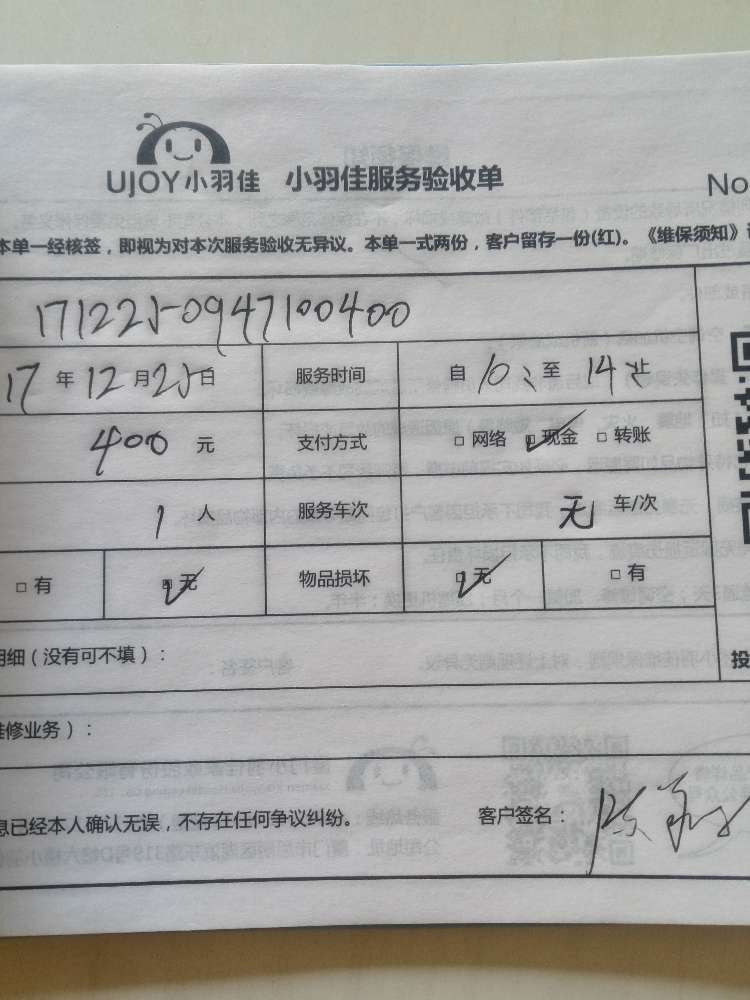 UJOY小羽佳 小羽佳服务验收单
No
本单一经核签，即视为对本次服务验收无异议。本单一式两份，客户留存一份(红)。《维保须知》
171225-0947100400
17年12月25日 服务时间 自10：至14：止
400元 支付方式 □网络 ☑现金 □转账
1人 服务车次 无车/次
□有 ☑无 物品损坏 ☑无 □有
明细（没有可不填）：
投
维修业务）：
息已经本人确认无误，不存在任何争议纠纷。 客户签名：